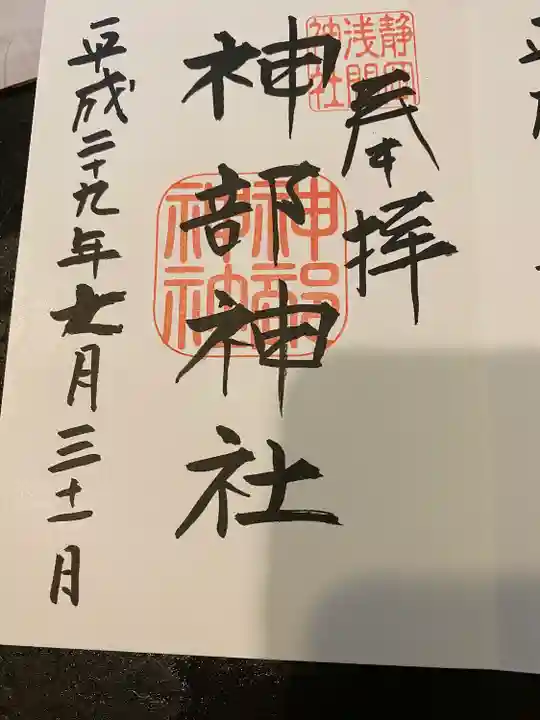 奉拝
静岡
浅間
神社
神部神社
神部
神社
平成二十九年七月三十一日
平成